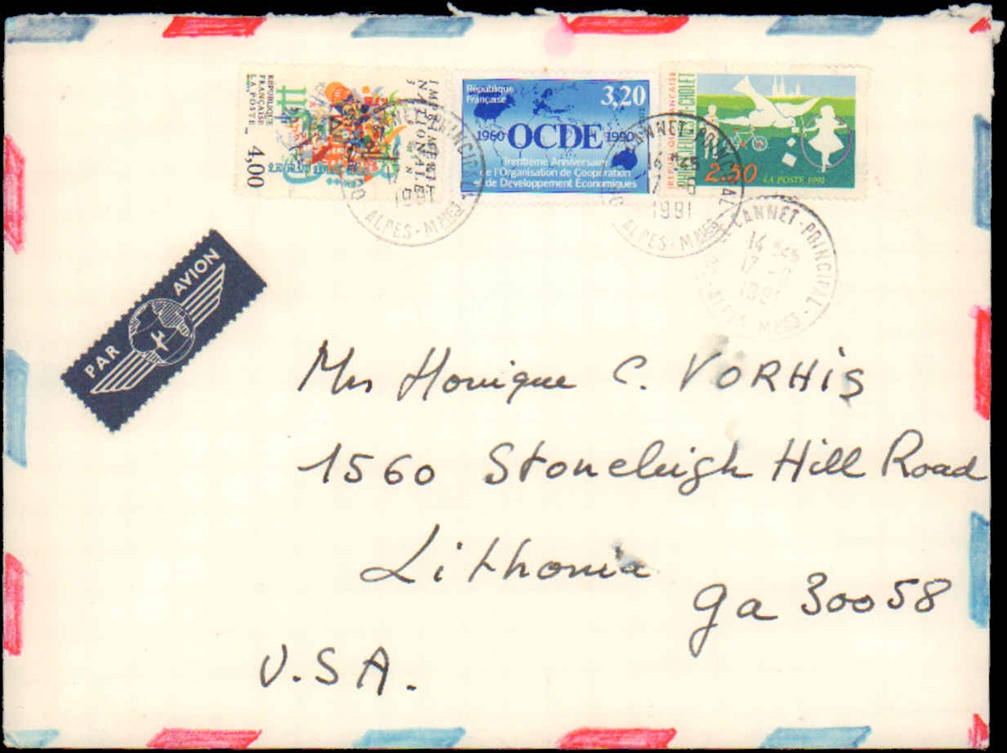 RÉPUBLIQUE
FRANÇAISE
LA POSTE
4,00
IMPRIMERIE
NATIONALE
République
Française
3,20
1960 OCDE 1990
Trentième Anniversaire
de l'Organisation de Coopération
et de Développement Economiques
2.50
LA POSTE 1991
CANNET-PRINCIPAL
1991
ALPES-MMES
CANNET-PRINCIPAL
14 H45
1991
ALPES-MMES
LE CANNET-PRINCIPAL
14 H45
17
1991
ALPES-MMES
PAR AVION
Mrs Monique C. VORHIS
1560 Stoneleigh Hill Road
Lithonia
ga 30058
U.S.A.